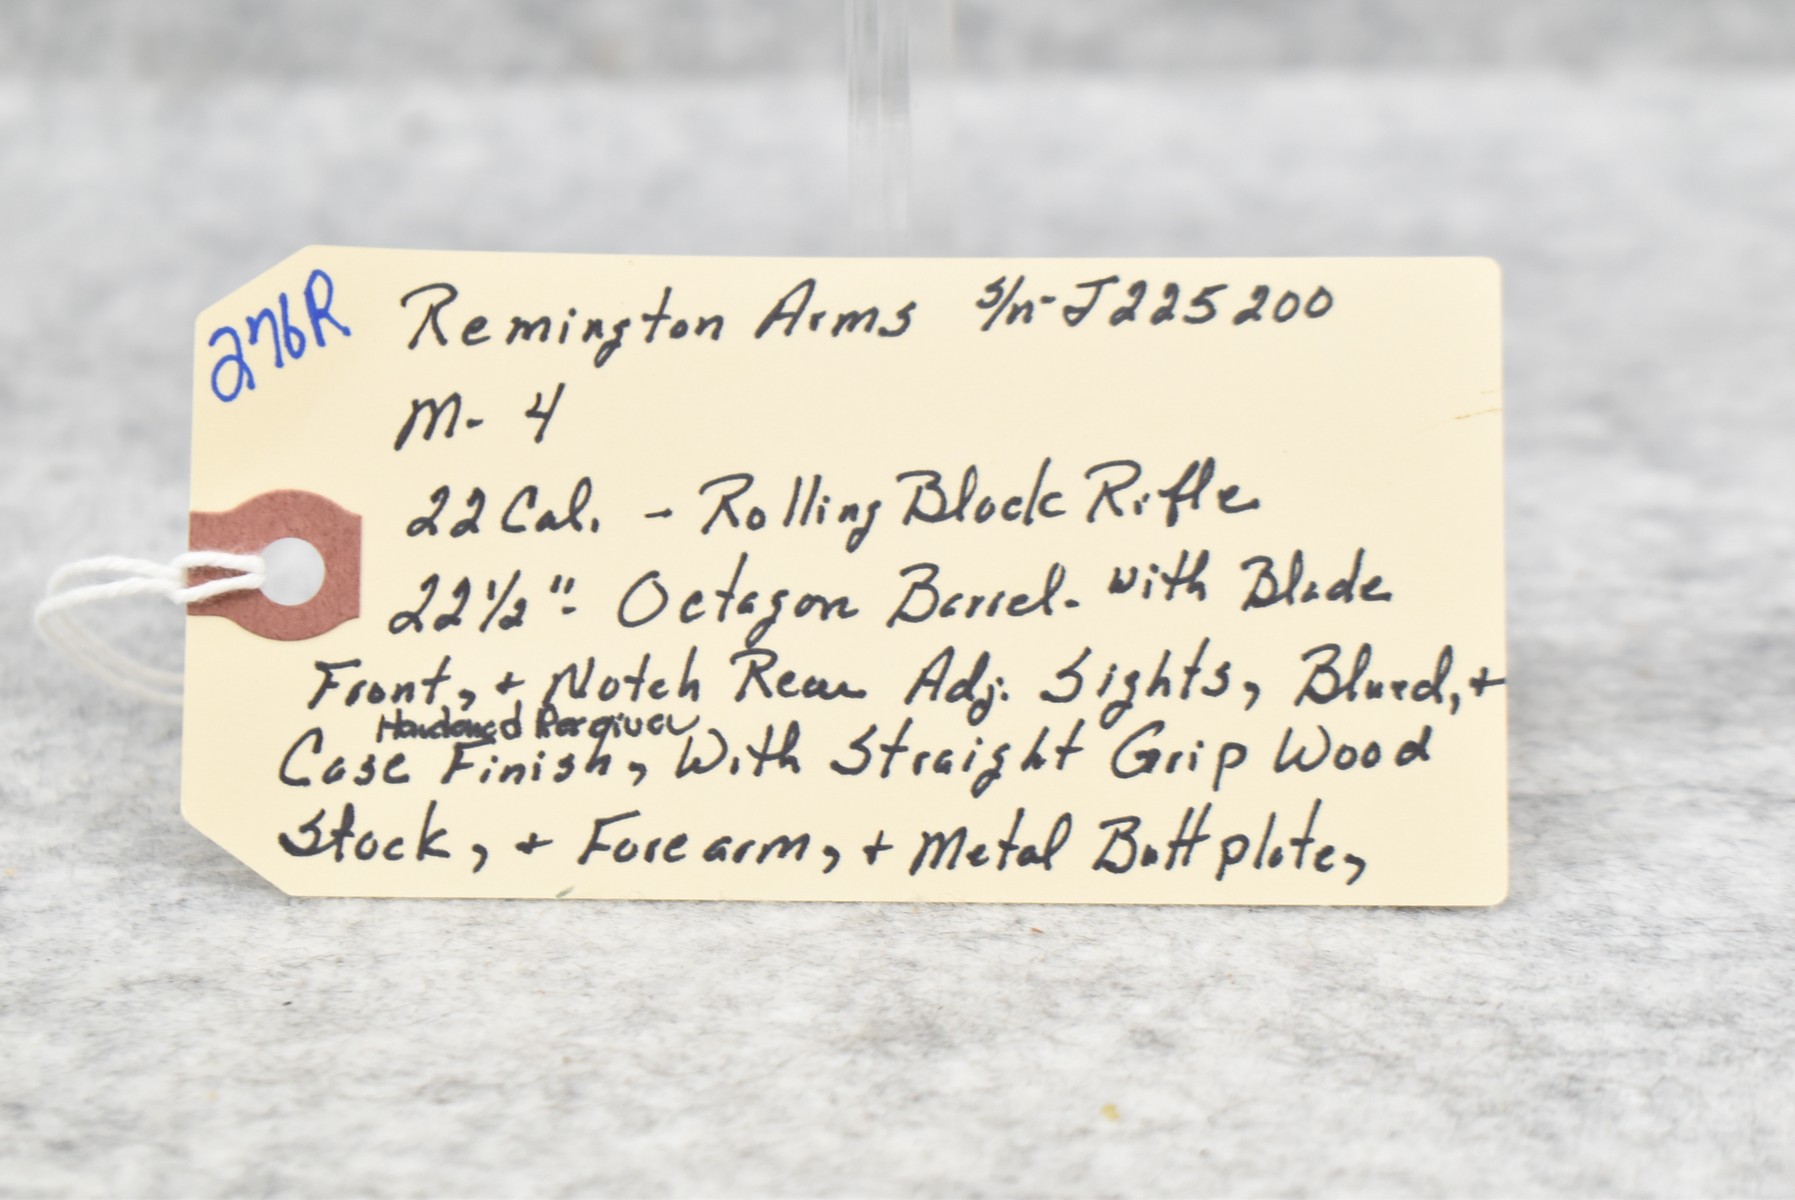 276R
Remington Arms S/n-J225200
M-4
22 Cal. - Rolling Block Rifle
22 1/2"- Octagon Barrel- with Blade
Front, + Notch Rear Adj. Sights, Blued, +
Hardened
Case Finish, With Straight Grip Wood
Stock, + Forearm, + Metal Buttplate,